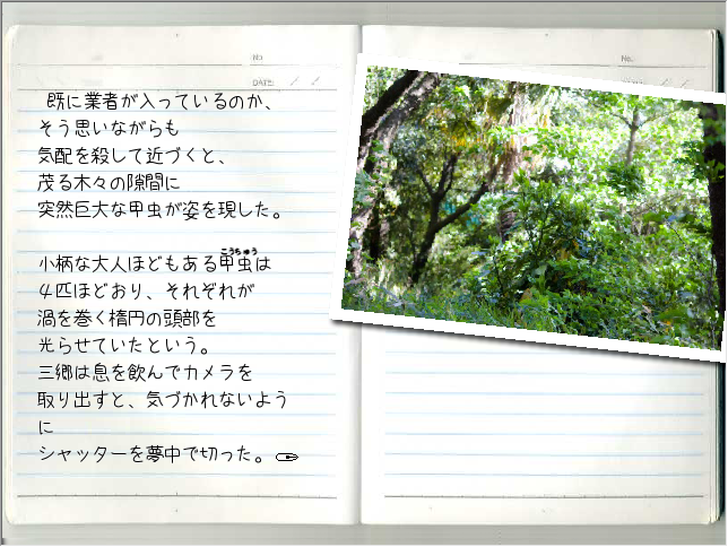 No.
DATE: / /
No.
既に業者が入っているのか、
そう思いながらも
気配を殺して近づくと、
茂る木々の隙間に
突然巨大な甲虫が姿を現した。
こうちゅう
小柄な大人ほどもある甲虫は
4匹ほどおり、それぞれが
渦を巻く楕円の頭部を
光らせていたという。
三郷は息を飲んでカメラを
取り出すと、気づかれないよう
に
シャッターを夢中で切った。